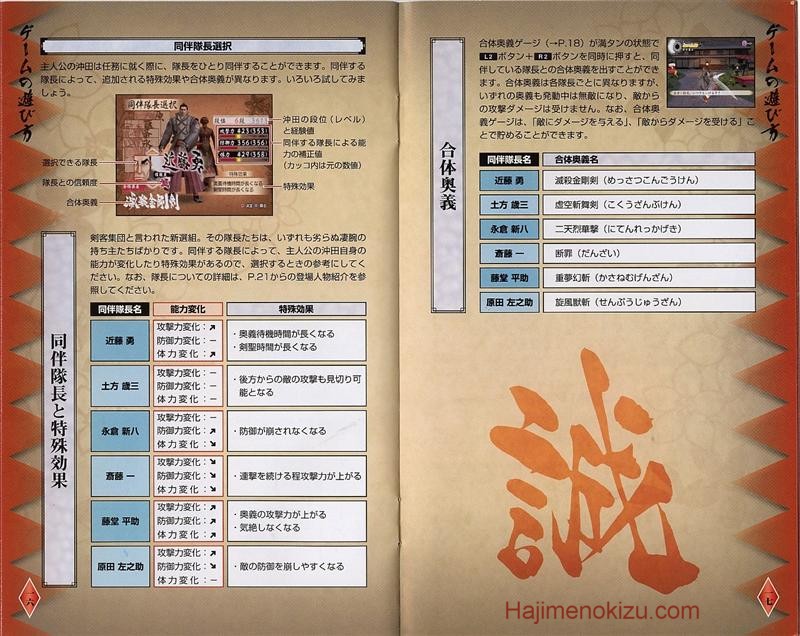 ゲームの遊び方
同伴隊長選択
主人公の沖田は任務に就く際に、隊長をひとり同伴することができます。同伴する
隊長によって、追加される特殊効果や合体奥義が異なります。いろいろ試してみま
しょう。
同伴隊長選択
沖田の段位(レベル)
と経験値
同伴する隊長による能
力の補正値
(カッコ内は元の数値)
特殊効果
選択できる隊長
隊長との信頼度
合体奥義
近藤勇
滅殺金剛剣
同伴隊長と特殊効果
剣客集団と言われた新選組。その隊長たちは、いずれも劣らぬ凄腕の
持ち主たちばかりです。同伴する隊長によって、主人公の沖田自身の
能力が変化したり特殊効果があるので、選択するときの参考にしてく
ださい。なお、隊長についての詳細は、P.21からの登場人物紹介を参
照してください。
同伴隊長名 能力変化 特殊効果
近藤 勇
攻撃力変化:↗
防御力変化:−
体力変化:↗
・奥義待機時間が長くなる
・剣聖時間が長くなる
土方 歳三
攻撃力変化:−
防御力変化:−
体力変化:−
・後方からの敵の攻撃も見切り可
能となる
永倉 新八
攻撃力変化:−
防御力変化:↗
体力変化:↘
・防御が崩されなくなる
斎藤 一
攻撃力変化:↘
防御力変化:↘
体力変化:↘
・連撃を続ける程攻撃力が上がる
藤堂 平助
攻撃力変化:↗
防御力変化:↗
体力変化:↗
・奥義の攻撃力が上がる
・気絶しなくなる
原田 左之助
攻撃力変化:↗
防御力変化:↘
体力変化:−
・敵の防御を崩しやすくなる
一六
ゲームの遊び方
合体奥義
合体奥義ゲージ(→P.18)が満タンの状態で
L2ボタン+R2ボタンを同時に押すと、同
伴している隊長との合体奥義を出すことができ
ます。合体奥義は各隊長ごとに異なりますが、
いずれの奥義も発動中は無敵になり、敵から
の攻撃ダメージは受けません。なお、合体奥
義ゲージは、「敵にダメージを与える」、「敵からダメージを受ける」こ
とで貯めることができます。
同伴隊長名 合体奥義名
近藤 勇 滅殺金剛剣(めっさつこんごうけん)
土方 歳三 虚空斬舞剣(こくうざんぶけん)
永倉 新八 二天烈華撃(にてんれっかげき)
斎藤 一 断罪(だんざい)
藤堂 平助 重夢幻斬(かさねむげんざん)
原田 左之助 旋風獣斬(せんぷうじゅうざん)
誠
一七
Hajimenokizu.com